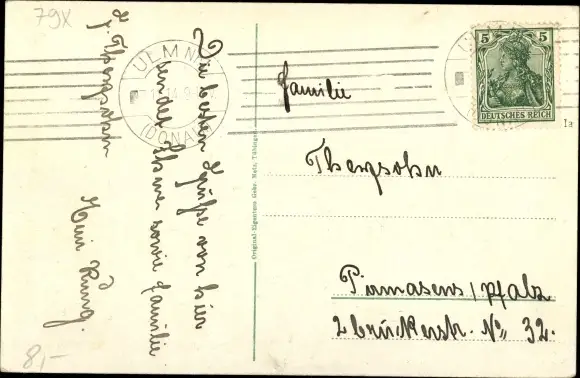 79X
ULM
(DONAU)
Die besten Grüße von hier
sendet Ihnen sowie Familie
Familie
Thergsohn
Pirmasens / Pfalz
Zbrückerstr. No 32.
5 5
DEUTSCHES REICH
Ia
Original-Eigentum Gebr. Metz, Tübingen
8,-